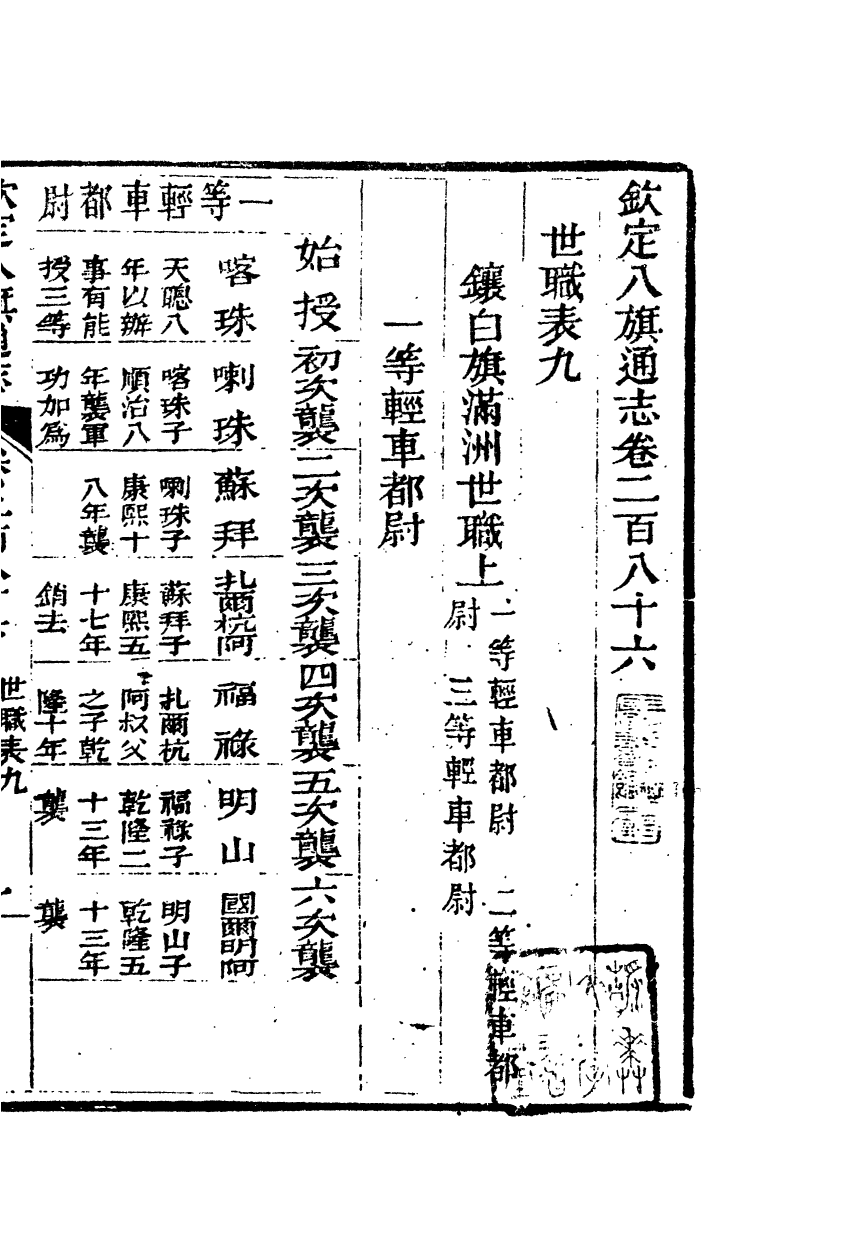 欽定八旗通志卷二百八十六
世職表九
鑲白旗滿洲世職上
一等輕車都尉 二等輕車都
尉 三等輕車都尉
一等輕車都尉
始授 初次襲 二次襲 三次襲 四次襲 五次襲 六次襲
一等輕車都尉
喀珠 喇珠 蘇拜 扎爾杭阿 福祿 明山 國爾明阿
天聰八 喀珠子 喇珠子 蘇拜子 扎爾杭 福祿子 明山子
年以辦 順治八 康熙十 康熙五 阿叔父 乾隆二 乾隆五
事有能 年襲軍 八年襲 十七年 之子乾 十三年 十三年
授三等 功加為 銷去 隆十年 襲 襲
世職表九